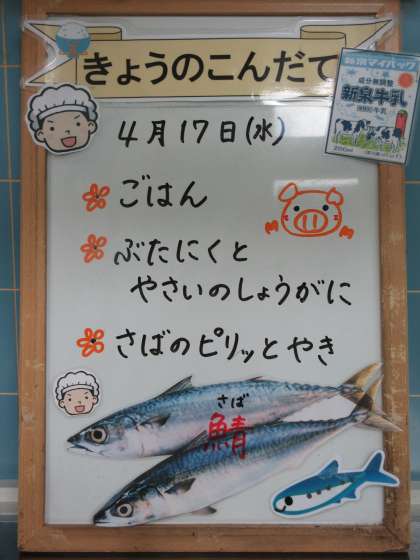 きょうのこんだて
4月17日(水)
ごはん
ぶたにくと
やさいのしょうがに
さばのピリッとやき
さば
鯖
成分無調整
新泉牛乳
200ml